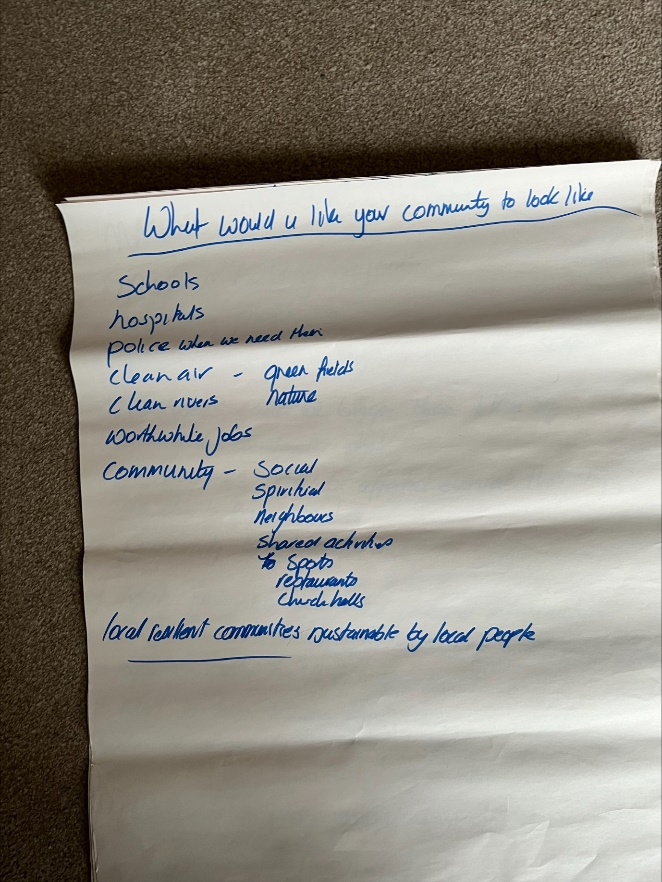 What would u like your community to look like
Schools
hospitals
police when we need them
clean air - green fields
clean rivers nature
worthwhile jobs
community - Social
Spiritual
neighbours
shared activities
to Sports
restaurants
Church halls
local resilient communities sustainable by local people